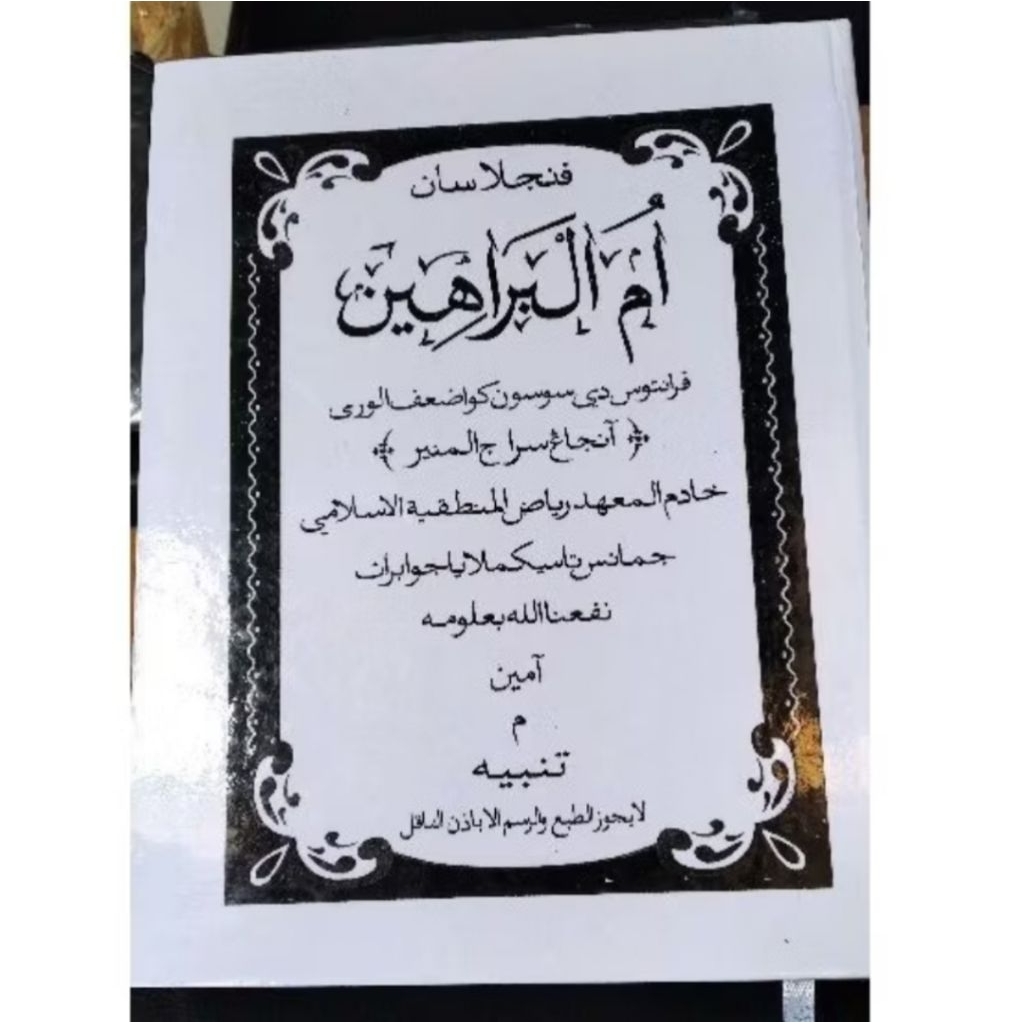 فنجلاسان
اُم الْبَرَاهِين
فرانتوس دي سوسون كو اضعف الورى
﴿ آنجاڠ سراج المنير ﴾
خادم المعهد رياض المنطقية الاسلامي
جمانس تاسيكملايا جوا بران
نفعنا الله بعلومه
آمين
م
تنبيه
لا يجوز الطبع والرسم الا باذن الناقل